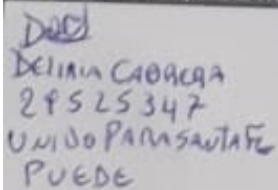 DELIRIA CABRERA
29525347
UNIDO PARA SANTA FE
PUEDE